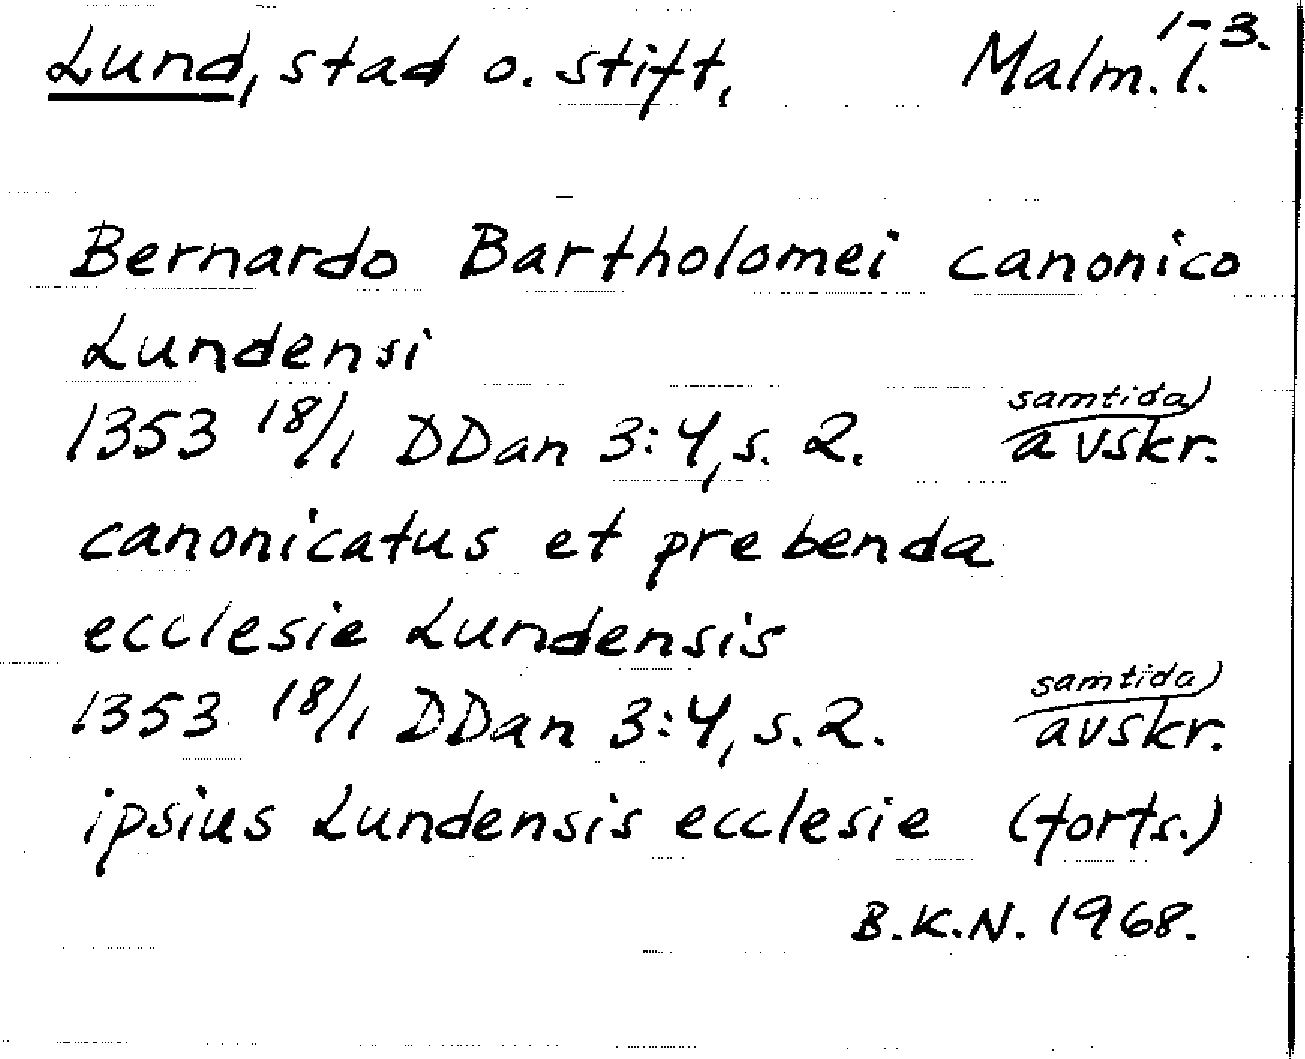 Lund, stad o. stift, Malm. l. 1-3.
Bernardo Bartholomei canonico
Lundensi
1353 18/1 DDan 3:4, s. 2. samtida) avskr.
canonicatus et prebenda
ecclesie Lundensis
1353 18/1 DDan 3:4, s. 2. samtida) avskr.
ipsius Lundensis ecclesie (forts.)
B.K.N. 1968.